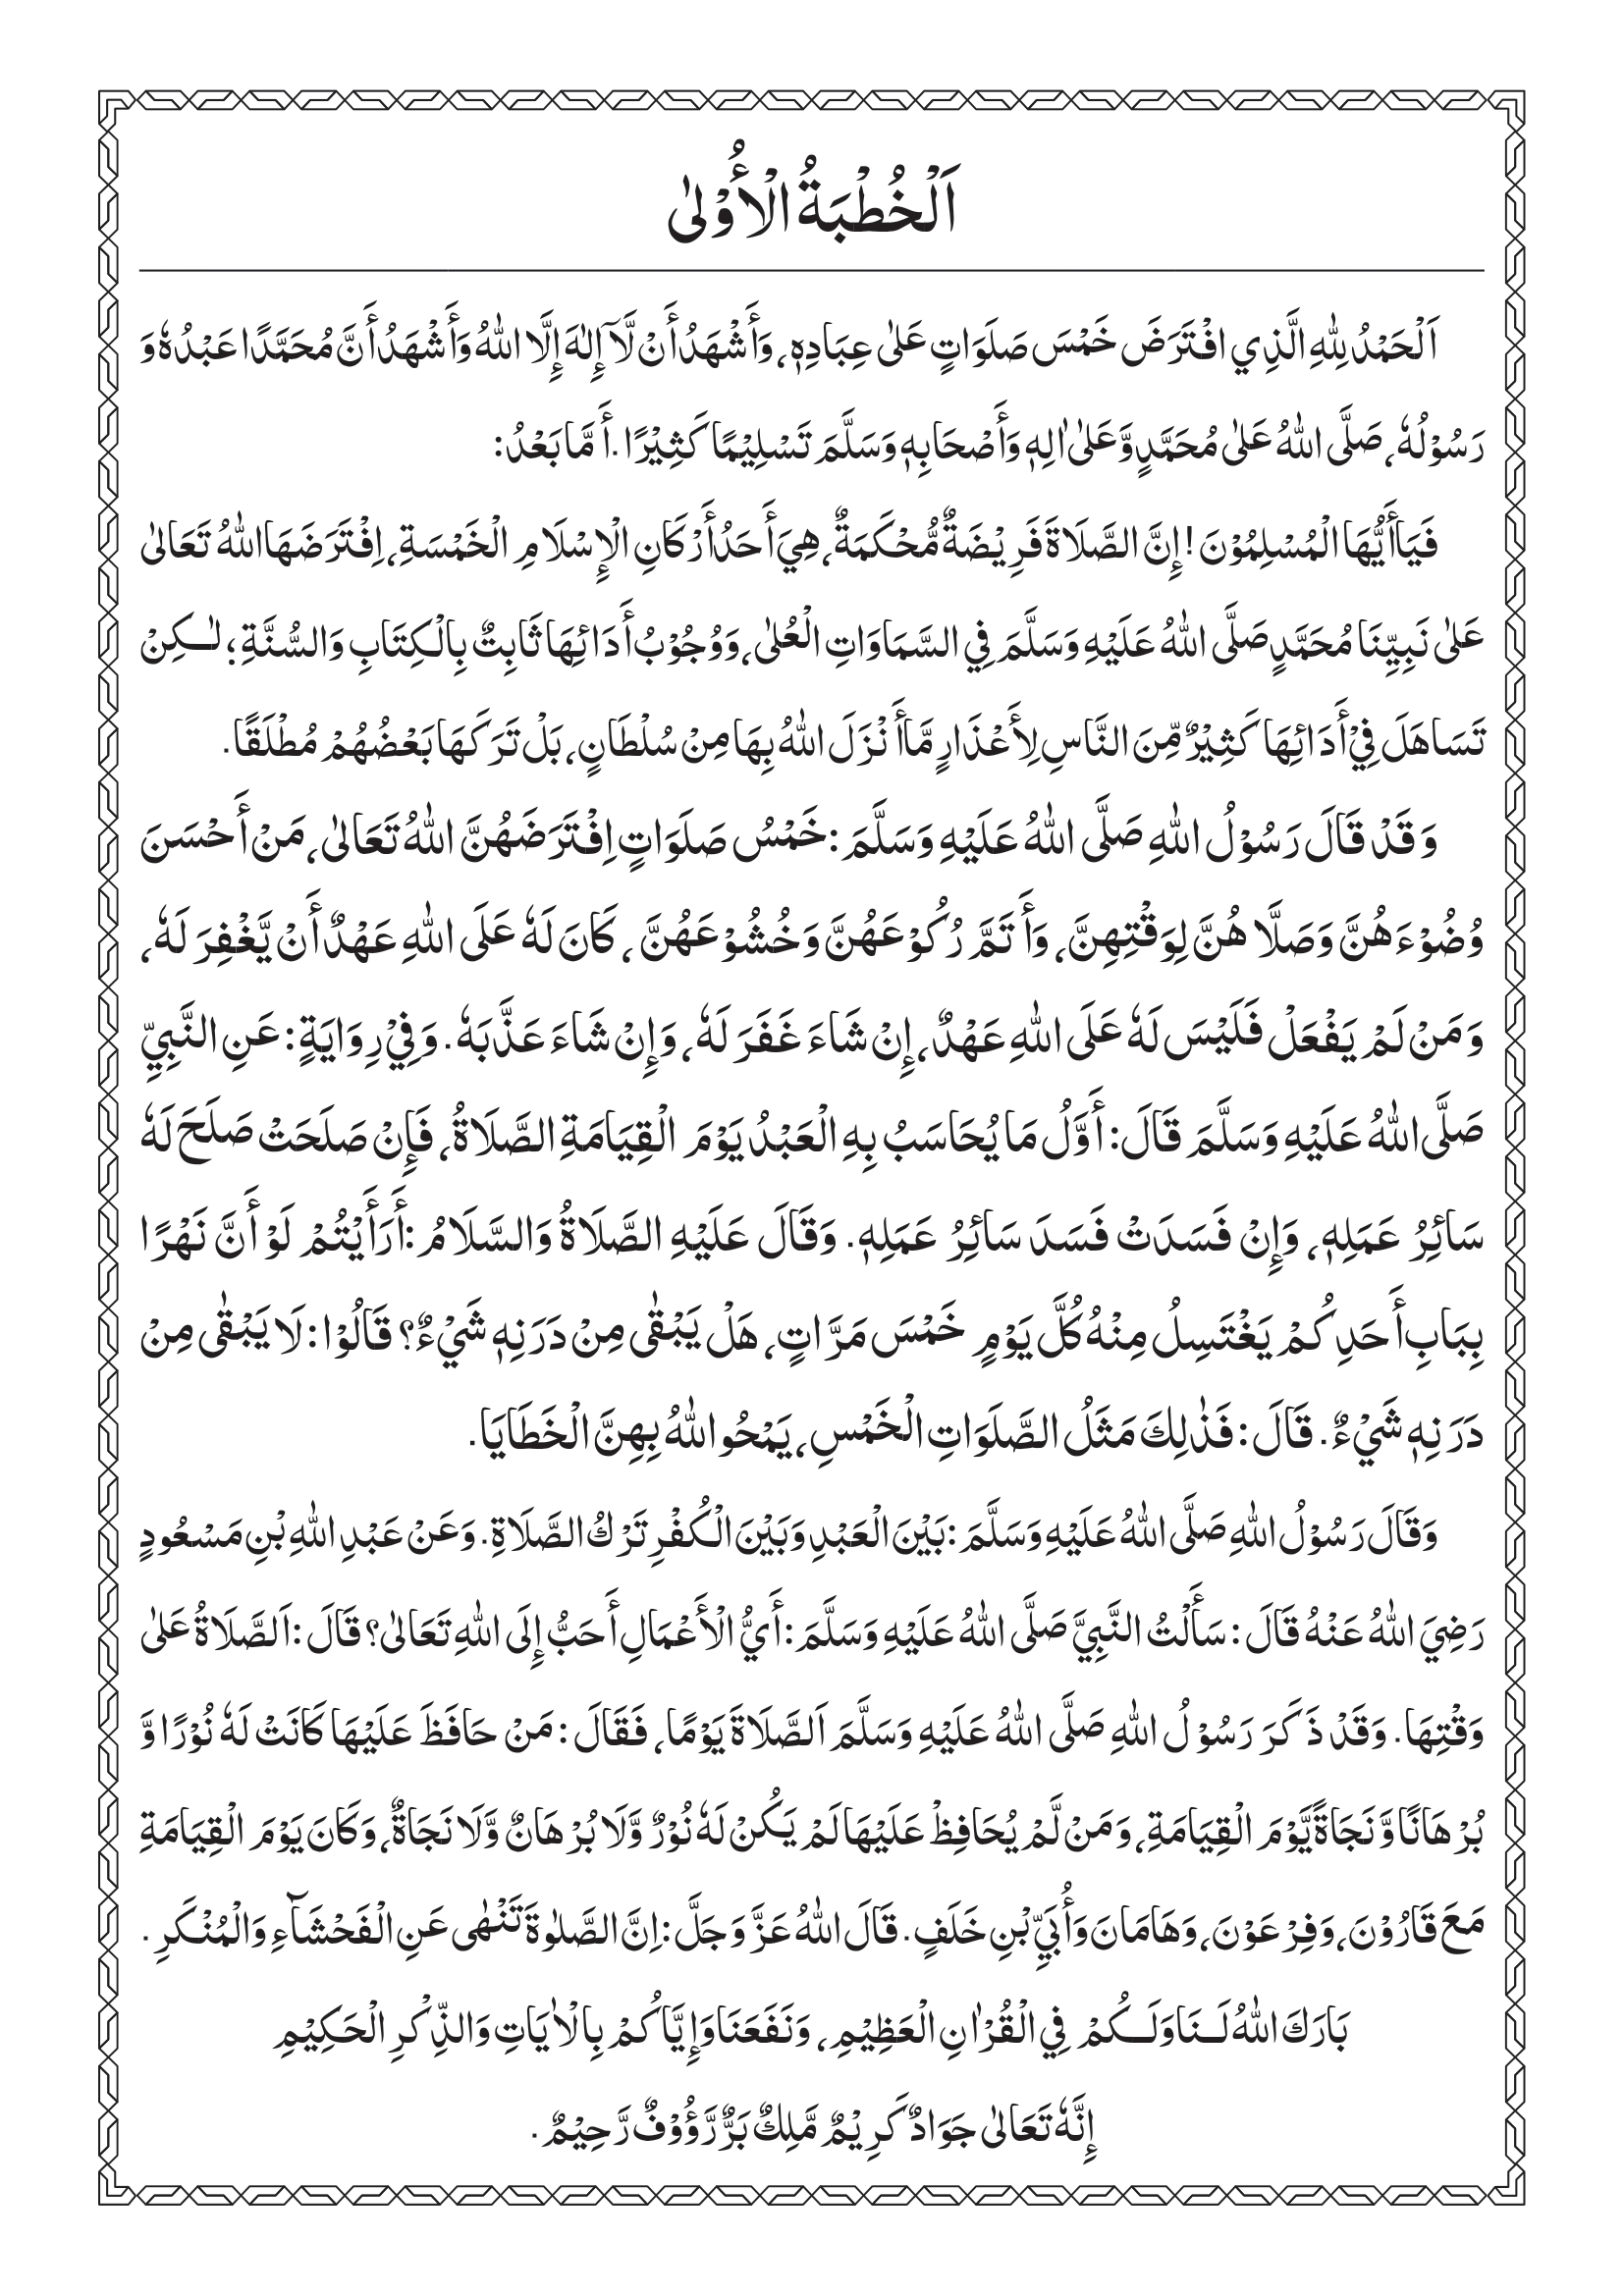 اَلْخُطْبَةُ الْأُوْلٰى
اَلْحَمْدُ لِلّٰهِ الَّذِي افْتَرَضَ خَمْسَ صَلَوَاتٍ عَلٰى عِبَادِهٖ، وَأَشْهَدُ أَنْ لَّآ إِلٰهَ إِلَّا اللّٰهُ وَأَشْهَدُ أَنَّ مُحَمَّدًا عَبْدُهٗ وَ
رَسُوْلُهٗ، صَلَّى اللّٰهُ عَلٰى مُحَمَّدٍ وَّعَلٰى اٰلِهٖ وَأَصْحَابِهٖ وَسَلَّمَ تَسْلِيْمًا كَثِيْرًا. أَمَّا بَعْدُ:
فَيَاأَيُّهَا الْمُسْلِمُوْنَ! إِنَّ الصَّلَاةَ فَرِيْضَةٌ مُّحْكَمَةٌ، هِيَ أَحَدُ أَرْكَانِ الْإِسْلَامِ الْخَمْسَةِ، اِفْتَرَضَهَا اللّٰهُ تَعَالٰى
عَلٰى نَبِيِّنَا مُحَمَّدٍ صَلَّى اللّٰهُ عَلَيْهِ وَسَلَّمَ فِي السَّمَاوَاتِ الْعُلٰى، وَوُجُوْبُ أَدَائِهَا ثَابِتٌ بِالْكِتَابِ وَالسُّنَّةِ؛ لٰـكِنْ
تَسَاهَلَ فِيْ أَدَائِهَا كَثِيْرٌ مِّنَ النَّاسِ لِأَعْذَارٍ مَّا أَنْزَلَ اللّٰهُ بِهَا مِنْ سُلْطَانٍ، بَلْ تَرَكَهَا بَعْضُهُمْ مُطْلَقًا.
وَقَدْ قَالَ رَسُوْلُ اللّٰهِ صَلَّى اللّٰهُ عَلَيْهِ وَسَلَّمَ: خَمْسُ صَلَوَاتٍ اِفْتَرَضَهُنَّ اللّٰهُ تَعَالٰى، مَنْ أَحْسَنَ
وُضُوْءَهُنَّ وَصَلَّا هُنَّ لِوَقْتِهِنَّ، وَأَتَمَّ رُكُوْعَهُنَّ وَخُشُوْعَهُنَّ، كَانَ لَهٗ عَلَى اللّٰهِ عَهْدٌ أَنْ يَّغْفِرَ لَهٗ،
وَمَنْ لَمْ يَفْعَلْ فَلَيْسَ لَهٗ عَلَى اللّٰهِ عَهْدٌ، إِنْ شَاءَ غَفَرَ لَهٗ، وَإِنْ شَاءَ عَذَّبَهٗ. وَفِيْ رِوَايَةٍ: عَنِ النَّبِيِّ
صَلَّى اللّٰهُ عَلَيْهِ وَسَلَّمَ قَالَ: أَوَّلُ مَا يُحَاسَبُ بِهِ الْعَبْدُ يَوْمَ الْقِيَامَةِ الصَّلَاةُ، فَإِنْ صَلَحَتْ صَلَحَ لَهٗ
سَائِرُ عَمَلِهٖ، وَإِنْ فَسَدَتْ فَسَدَ سَائِرُ عَمَلِهٖ. وَقَالَ عَلَيْهِ الصَّلَاةُ وَالسَّلَامُ: أَرَأَيْتُمْ لَوْ أَنَّ نَهْرًا
بِبَابِ أَحَدِكُمْ يَغْتَسِلُ مِنْهُ كُلَّ يَوْمٍ خَمْسَ مَرَّاتٍ، هَلْ يَبْقٰى مِنْ دَرَنِهٖ شَيْءٌ؟ قَالُوْا: لَا يَبْقٰى مِنْ
دَرَنِهٖ شَيْءٌ. قَالَ: فَذٰلِكَ مَثَلُ الصَّلَوَاتِ الْخَمْسِ، يَمْحُو اللّٰهُ بِهِنَّ الْخَطَايَا.
وَقَالَ رَسُوْلُ اللّٰهِ صَلَّى اللّٰهُ عَلَيْهِ وَسَلَّمَ: بَيْنَ الْعَبْدِ وَبَيْنَ الْكُفْرِ تَرْكُ الصَّلَاةِ. وَعَنْ عَبْدِ اللّٰهِ بْنِ مَسْعُودٍ
رَضِيَ اللّٰهُ عَنْهُ قَالَ: سَأَلْتُ النَّبِيَّ صَلَّى اللّٰهُ عَلَيْهِ وَسَلَّمَ: أَيُّ الْأَعْمَالِ أَحَبُّ إِلَى اللّٰهِ تَعَالٰى؟ قَالَ: اَلصَّلَاةُ عَلٰى
وَقْتِهَا. وَقَدْ ذَكَرَ رَسُوْلُ اللّٰهِ صَلَّى اللّٰهُ عَلَيْهِ وَسَلَّمَ اَلصَّلَاةَ يَوْمًا، فَقَالَ: مَنْ حَافَظَ عَلَيْهَا كَانَتْ لَهٗ نُوْرًا وَّ
بُرْهَانًا وَّنَجَاةً يَّوْمَ الْقِيَامَةِ، وَمَنْ لَّمْ يُحَافِظْ عَلَيْهَا لَمْ يَكُنْ لَهٗ نُوْرٌ وَّلَا بُرْهَانٌ وَّلَا نَجَاةٌ، وَكَانَ يَوْمَ الْقِيَامَةِ
مَعَ قَارُوْنَ، وَفِرْعَوْنَ، وَهَامَانَ وَأُبَيِّ بْنِ خَلَفٍ. قَالَ اللّٰهُ عَزَّ وَجَلَّ: اِنَّ الصَّلٰوةَ تَنْهٰى عَنِ الْفَحْشَآءِ وَالْمُنْكَرِ.
بَارَكَ اللّٰهُ لَـنَا وَلَـكُمْ فِي الْقُرْاٰنِ الْعَظِيْمِ، وَنَفَعَنَا وَإِيَّاكُمْ بِالْاٰيَاتِ وَالذِّكْرِ الْحَكِيْمِ
إِنَّهٗ تَعَالٰى جَوَادٌ كَرِيْمٌ مَّلِكٌ بَرٌّ رَّؤُوْفٌ رَّحِيْمٌ.